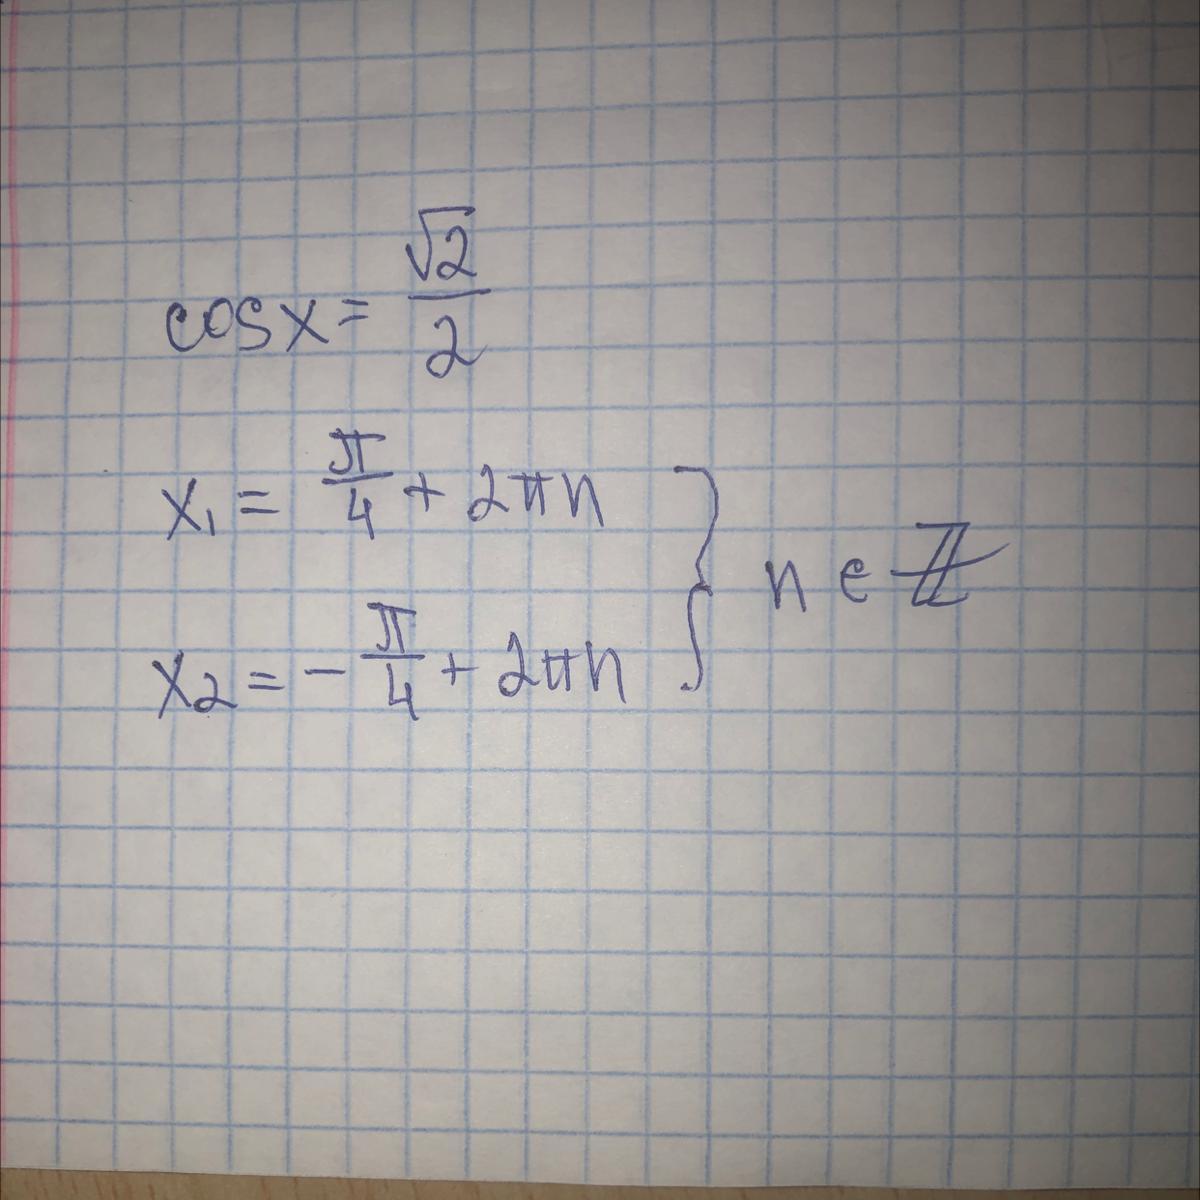 cosx = √2/2
x₁ = π/4 + 2πn
x₂ = - π/4 + 2πn } n ∈ ℤ